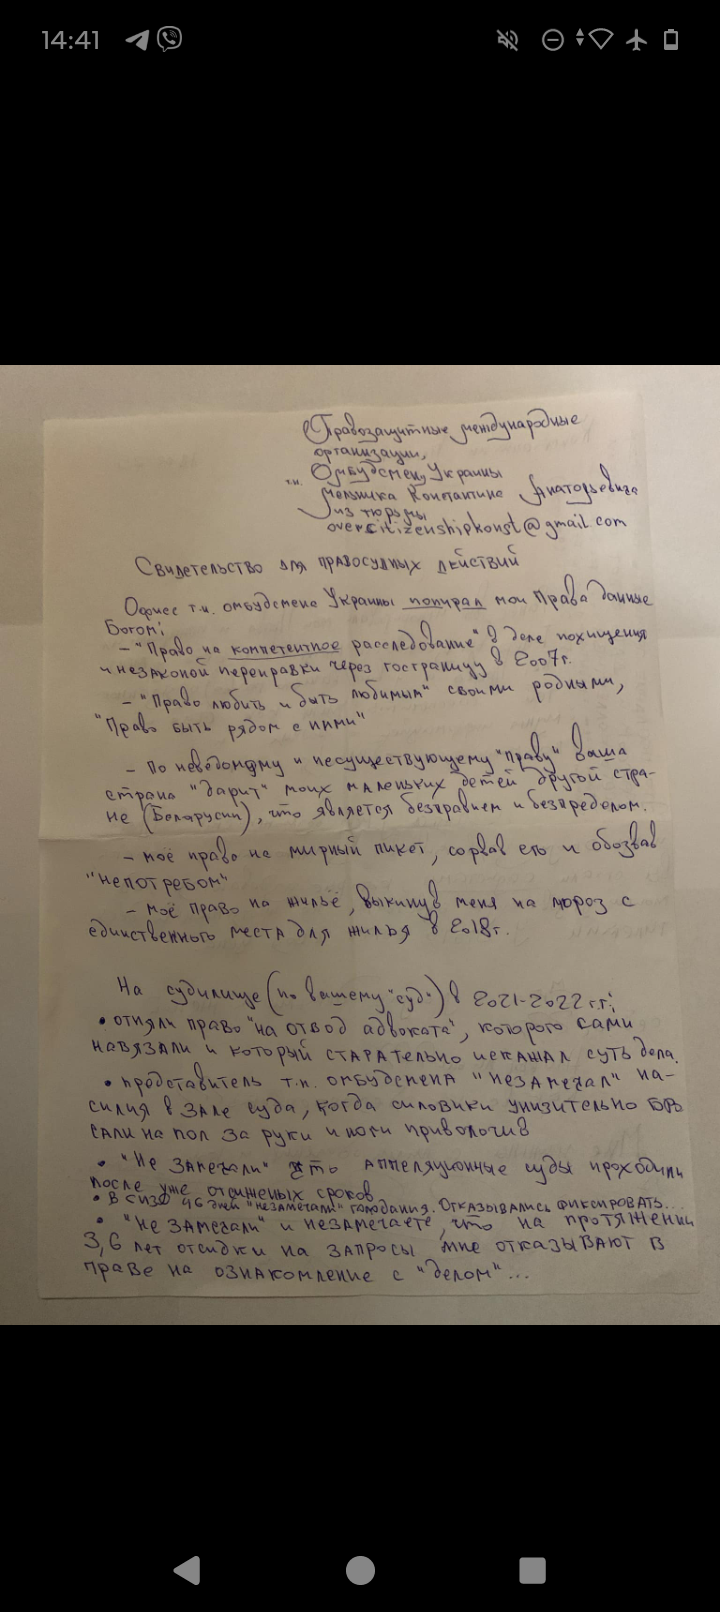 14:41
Правозащитные международные
организации,
Омбудсмену Украины
т.н.
Мельника Константина Анатольевича
из тюрьмы
overcitizenshipkonst@gmail.com
Свидетельство для правосудных действий
Офис т.н. омбудсмена Украины попирал мои Права данные
Богом:
– "Право на компетентное расследование" в деле похищения
и незаконой переправки через госграницу в 2007г.
– "Право любить и быть любимым" своими родными,
"Право быть рядом с ними"
– По неведомому и несуществующему "праву" ваша
страна "дарит" моих маленьких детей другой стра-
не (Беларусии), что является безправием и безпределом.
– моё право на мирный пикет, сорвав его и обозвав
"непотребом"
– моё право на жильё, выкинув меня на мороз с
единственного места для жилья в 2018г.
На судилище (по вашему "суд") в 2021-2022 г.г.:
• отняли право "на отвод адвоката", которого сами
навязали и который старательно искажал суть дела.
• представитель т.н. омбудсмена "незамечал" на-
силия в зале суда, когда силовики унизительно бро
сали на пол за руки и ноги приволочив
• "Не замечали" что аппеляционные суды проходили
после уже отсиженых сроков
• В СИЗО 46 дней "незамечали" голодания. Отказывались фиксировать...
• "Не замечали" и незамечаете, что на протяжении
3,6 лет отсидки на запросы мне отказывают в
праве на ознакомление с "делом"...